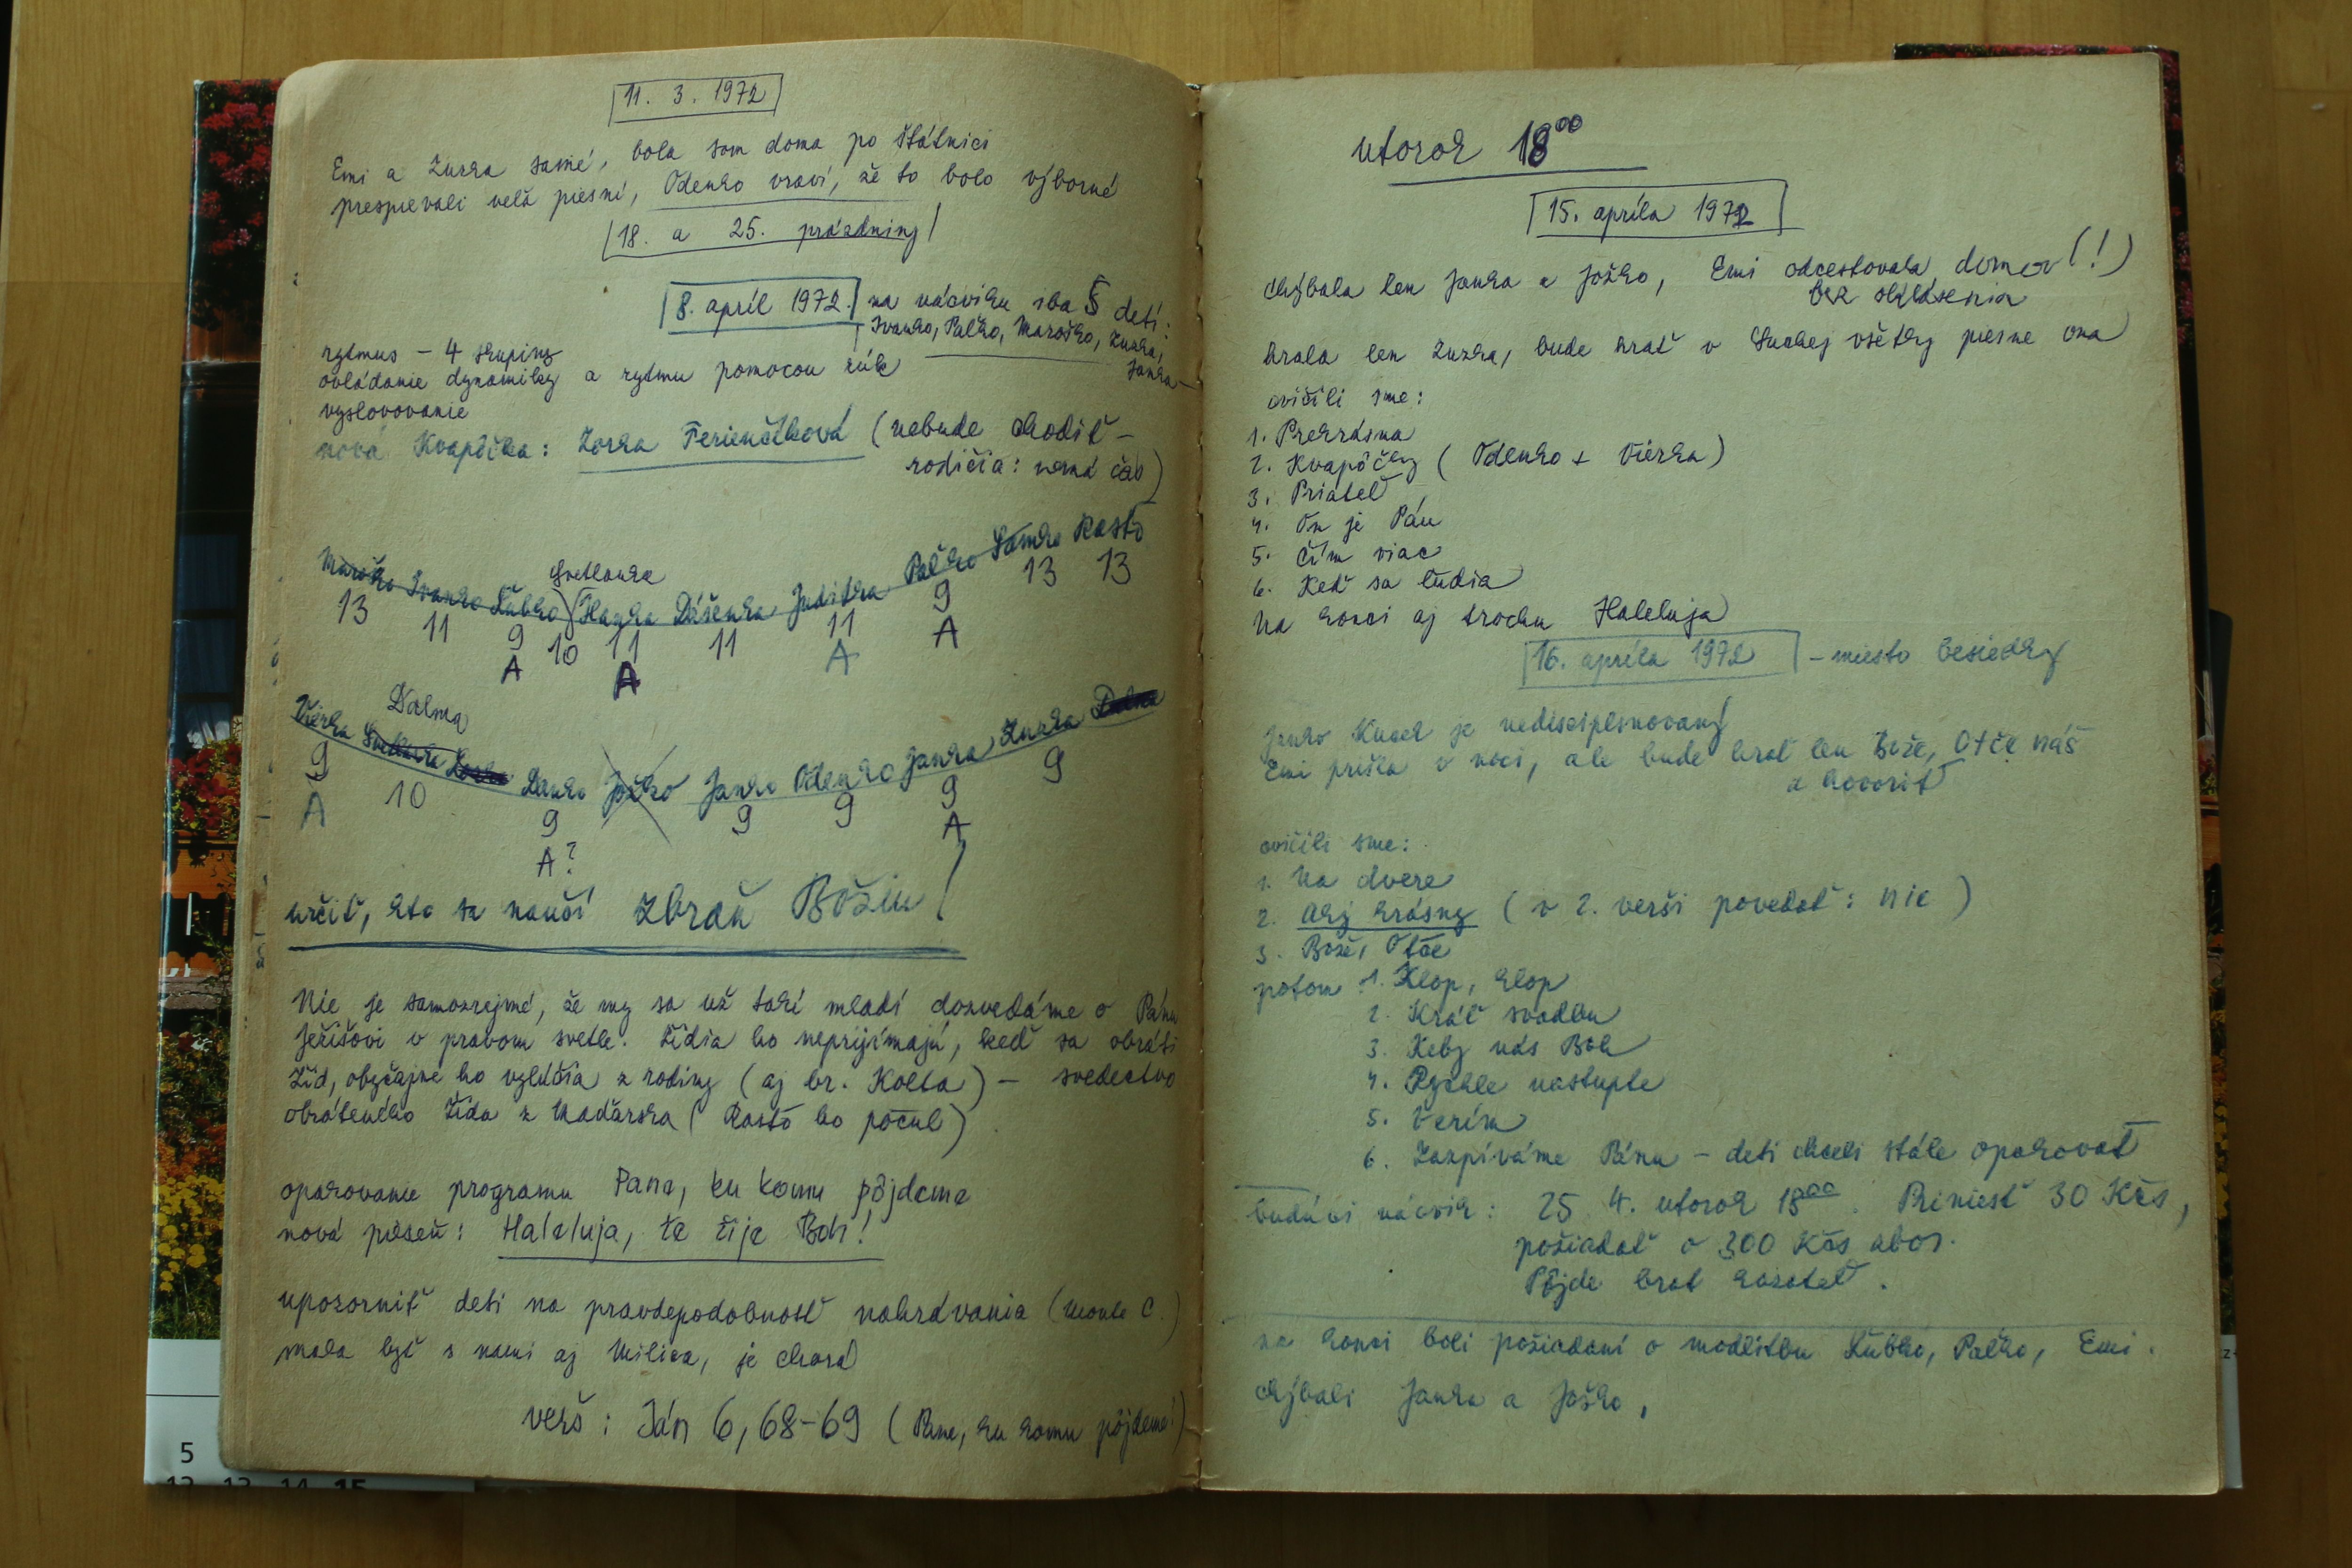 11. 3. 1972
Emi a Zuzka samé, bola som doma po štátnici
prespievali veľa piesní, Odenko vraví, že to bolo výborné
18. a 25. prázdniny
8. apríl 1972. na nácviku iba 5 detí:
Ivanko, Paľko, Maroško, Zuzka,
Janka
rytmus – 4 skupiny
ovládanie dynamiky a rytmu pomocou rúk
vyslovovanie
nová Kvapôčka: Zorka Ferienčíková (nebude chodiť –
rodičia: nemá čas)
Svetlanka
Maroško Ivanko Ľubko Hanka Dášenka Juditka Paľko Janka Rasťo
13 11 9 10 11 11 11 9 13 13
A A A A
Dalma
Vierka Svetlanka Zorka Danko Jožko Janko Odenko Janka Zuzka
9 10 9 9 9 9 9
A A? A
určiť, kto sa naučí zbraň Božiu!
Nie je samozrejmé, že my sa už takí mladí dozvedáme o Pánu
Ježišovi v pravom svetle. Židia ho neprijímajú, keď sa obráti
Žid, obyčajne ho vylúčia z rodiny (aj br. Kolta) – svedectvo
obráteného Žida z Maďarska (Rasťo ho počul)
opakovanie programu Pane, ku komu pôjdeme
nová pieseň: Haleluja, te žije Boh!
upozorniť deti na pravdepodobnosť nahrávania (Monte C.)
mala byť s nami aj Milica, je chorá
verš: Ján 6, 68-69 (Pane, ku komu pôjdeme!)
utorok 18⁰⁰
15. apríla 1972
chýbala len Janka a Jožko, Emi odcestovala domov (!)
bez ohlásenia
hrala len Zuzka, bude hrať v Suchej všetky piesne ona
cvičili sme:
1. Prekrásna
2. Kvapôčky (Odenko + Vierka)
3. Priateľ
4. On je Pán
5. Čím viac
6. Keď sa ľudia
Na konci aj trochu Haleluja
16. apríla 1972 – miesto besiedky
Janko Kucek je nedisciplinovaný
Emi prišla v noci, ale bude hrať len Bože, Otče náš
a hovoriť
cvičili sme:
1. Na dvere
2. Aký krásny (v 2. verši povedať: nie)
3. Bože, Otče
potom 1. Klop, klop
2. Kráľ svadbu
3. Keby nás Boh
4. Rýchle nastupte
5. Verím
6. Zazpíváme Pánu – deti chceli stále opakovať
budúci nácvik: 25. 4. utorok 18⁰⁰. Priniesť 30 Kčs,
požiadať o 300 Kčs zbor.
Pôjde brat kazateľ.
na konci boli požiadaní o modlitbu Ľubko, Paľko, Emi.
chýbali Janka a Jožko,